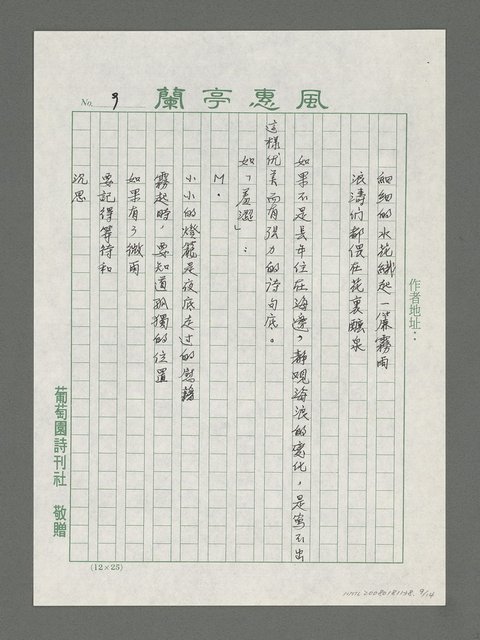 風惠亭蘭
No. 9
作者地址：
細細的水花綁起一簾霧雨
浪濤们都偎在花裏釀泉
如果不是長年住在海邊，靜观海浪的变化，是寫不出
這樣优美而有張力的诗句底。
如「羞澀」：
M.
小小的燈籠是夜底走过的慰藉
霧起時，要知道孤獨的位置
如果有了微雨
要記得等待和
沉思
葡萄園詩刊社 敬贈
(12×25)
NMTL20080181138. 9/14